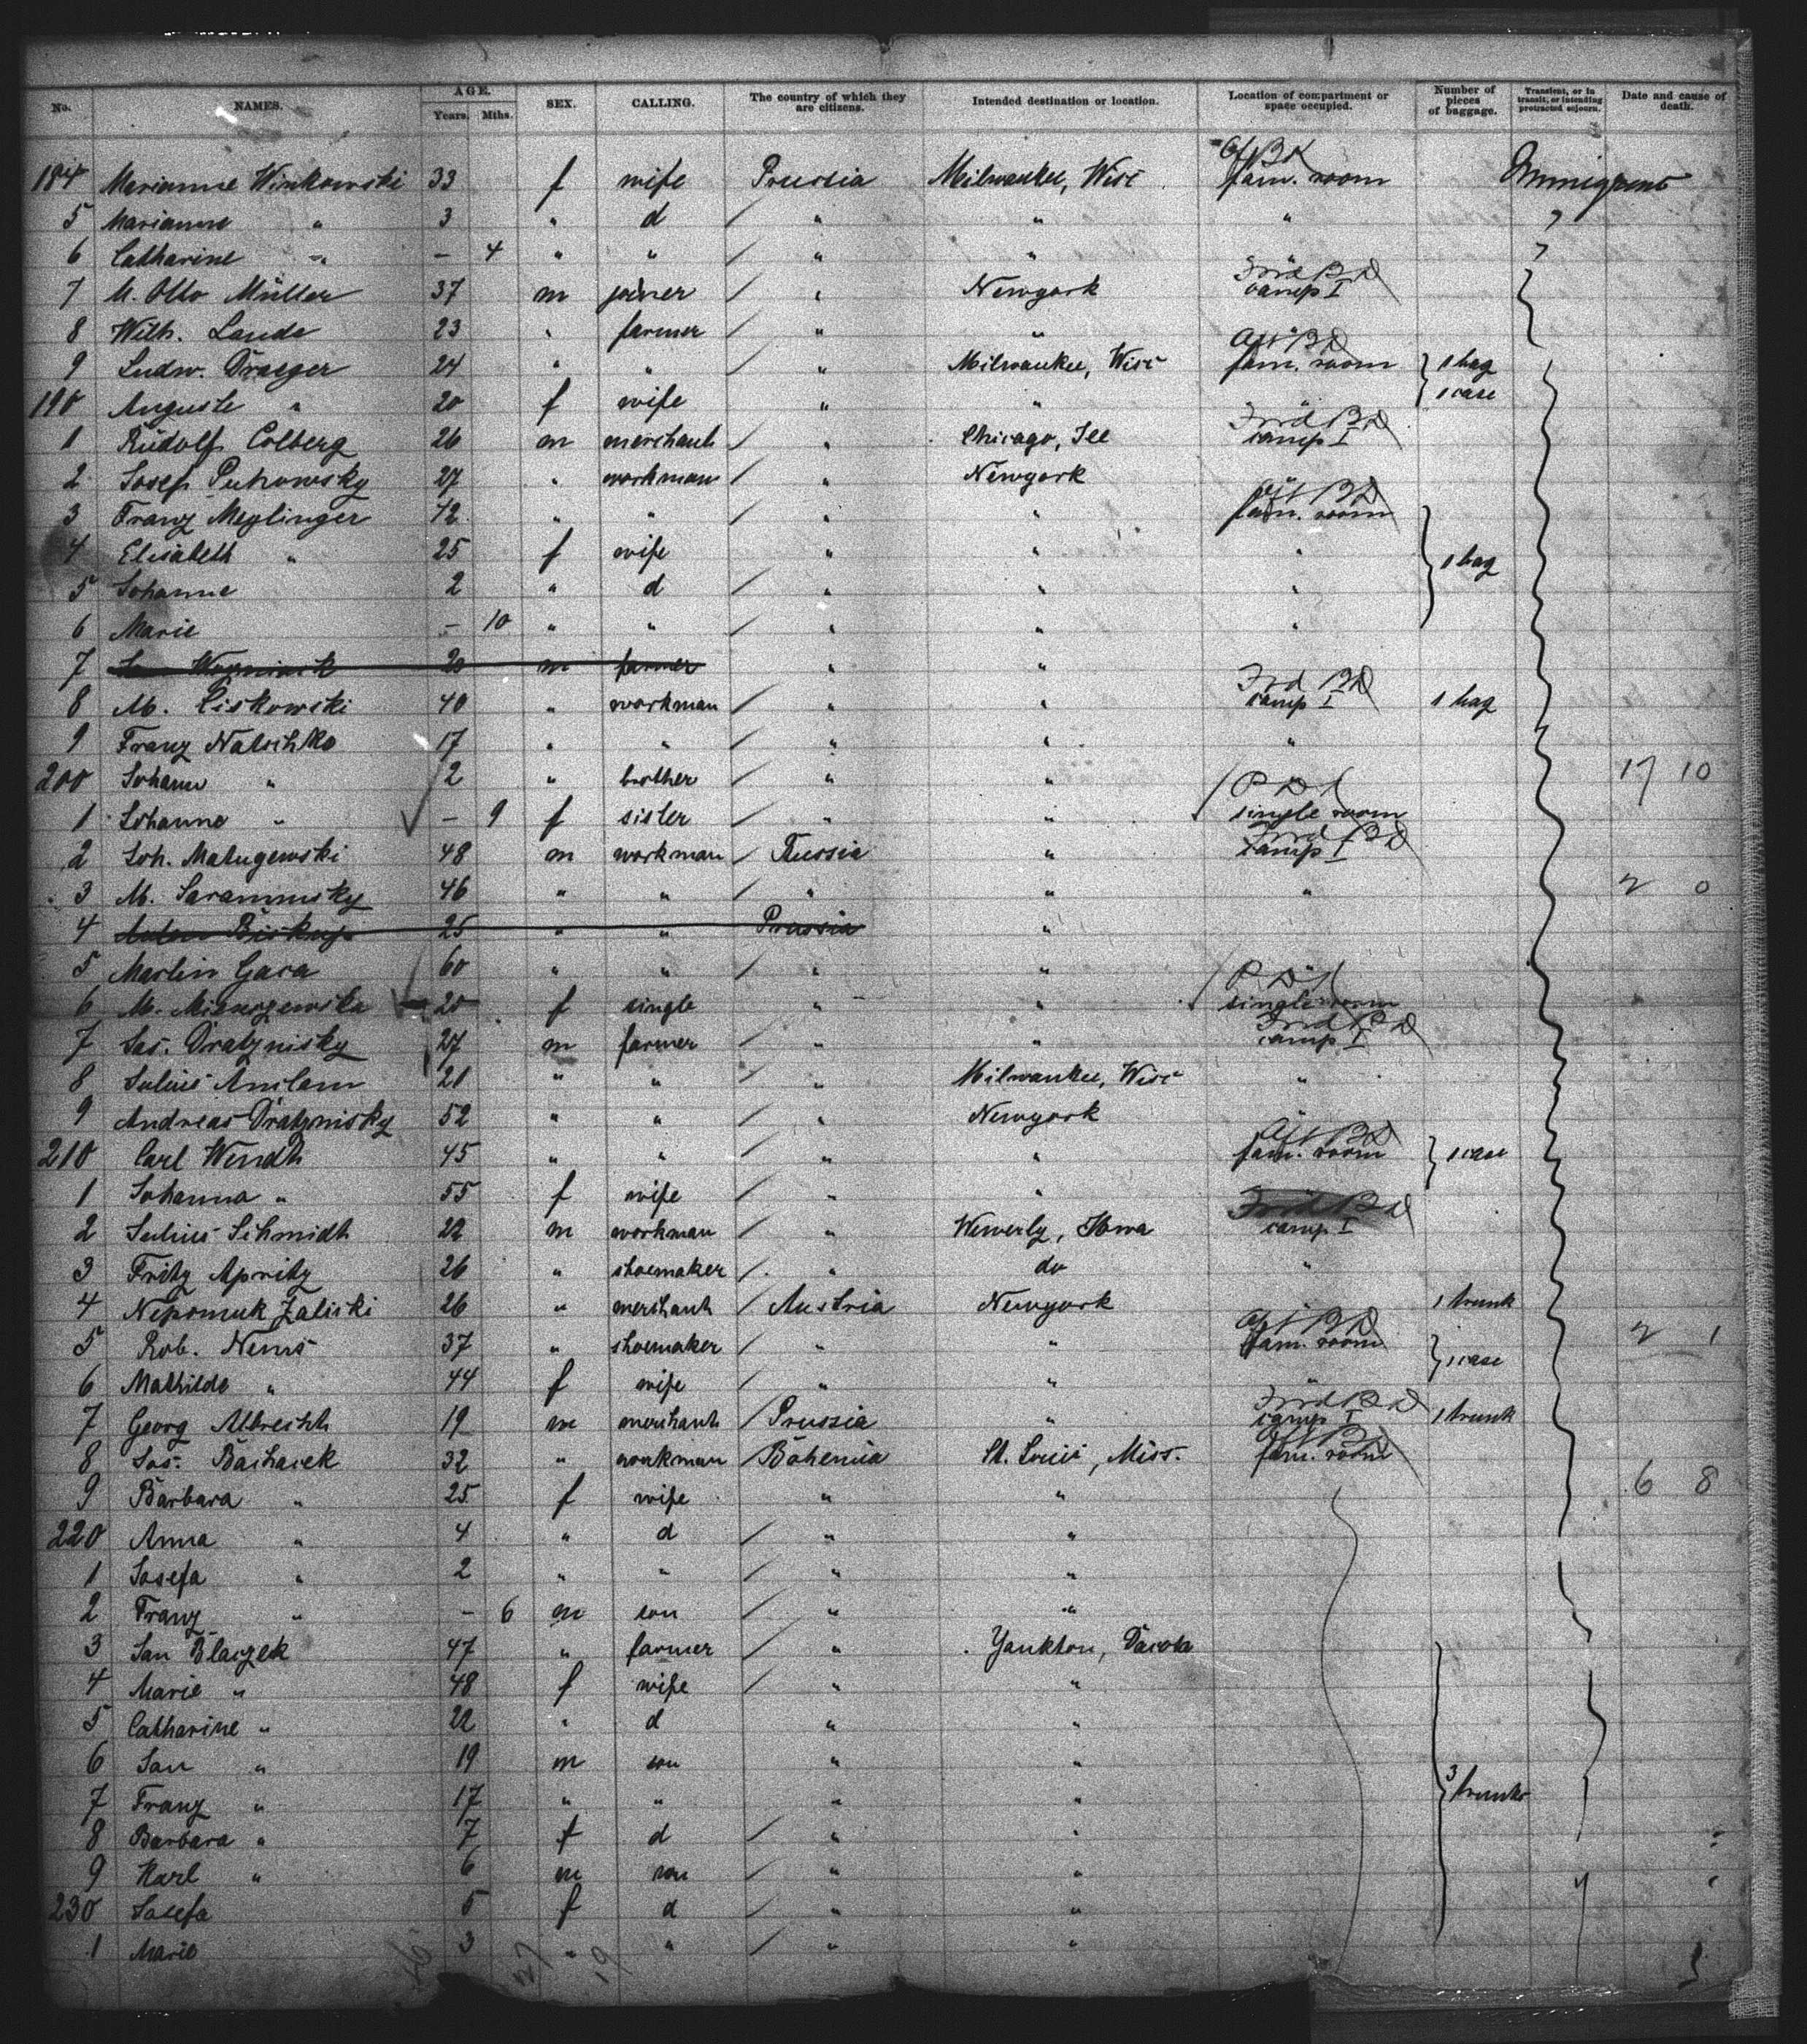 No. NAMES. AGE. Years. Mths. SEX. CALLING. The country of which they are citizens. Intended destination or location. Location of compartment or space occupied. Number of pieces of baggage. Transient, or in transit, or intending protracted sojourn. Date and cause of death.
184 Marianne Winkowski 33 f wife Prussia Milwaukee, Wisc Aft BD fam. room Immigrant
5 Marianne " 3 " d / " " "
6 Catharine " – 4 " " / " "
7 M. Otto Müller 37 m joiner / " Newyork Frd BD camp I
8 Wilh. Lande 23 " farmer / " " "
9 Ludw. Draeger 24 " " / " Milwaukee, Wisc Aft BD fam. room 1 bag
190 Auguste " 20 f wife " " " 1 case
1 Rudolf Colberg 26 m merchant / " Chicago, Ill Frd BD camp I
2 Josef Putrowsky 27 " workman / " Newyork "
3 Franz Meylinger 42 " " / " " Aft BD fam. room
4 Elisabeth " 25 f wife " " " 1 bag
5 Johanne 2 " d / " " "
6 Marie – 10 " " / " " "
7 20 m farmer " "
8 M. Liskowski 40 " workman / " " Frd BD camp I 1 bag
9 Franz Natschko 17 " " / " " "
200 Johann " 2 " brother / " " 17 10
1 Johanne " – 9 f sister / " " PD single room
2 Joh. Matugewski 48 m workman / Russia " Frd BD camp I
3 M. 46 " " / " " " 2 0
4 Anton Biskup 25 " " Prussia "
5 Martin Gara 60 " " / " "
6 M. 20 f single " " PD single room
7 Jos. Dratznisky 27 m farmer / " " Frd BD camp I
8 Julius Amlam 21 " " / " Milwaukee, Wisc "
9 Andreas Dratznisky 52 " " / " Newyork
210 Carl Wendt 45 " " / " " Aft BD fam. room 1 case
1 Johanna " 55 f wife / " " "
2 Julius Schmidt 22 m workman / " Wewerly, Iowa Frd BD camp I
3 Fritz Apritz 26 " shoemaker / " do "
4 Nepomuk Zaliski 26 " merchant / Austria Newyork " 1 trunk
5 Rob. Nems 37 " shoemaker / " " Aft BD fam. room 2 1
6 Mathilde " 44 f wife / " " " 1 case
7 Georg Albrecht 19 m merchant / Prussia " Frd BD camp I 1 trunk
8 Jos. Bachacek 32 " workman / Bohemia St. Louis, Miss. Aft BD fam. room
9 Barbara " 25 f wife " " 6 8
220 Anna " 4 " d / " "
1 Josefa " 2 " " / " "
2 Franz " – 6 m son / " "
3 Jan Blaczek 47 " farmer / " Yankton, Dacota
4 Marie " 48 f wife / " "
5 Catharine " 22 " d " "
6 Jan " 19 m son " "
7 Franz " 17 " " " " 3 trunks
8 Barbara " 7 f d / " "
9 Karl " 6 m son / " "
230 Josefa 5 f d / " "
1 Marie 3 " " / " "
27 19